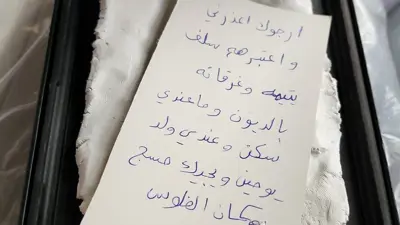 ارجوك اعذرني
و اعتبرهم سلف
يتيمه وغرقانه
بالديون وماعندي
سكن و عندي ولد
يومين ويجيك مسج
مكان الفلوس